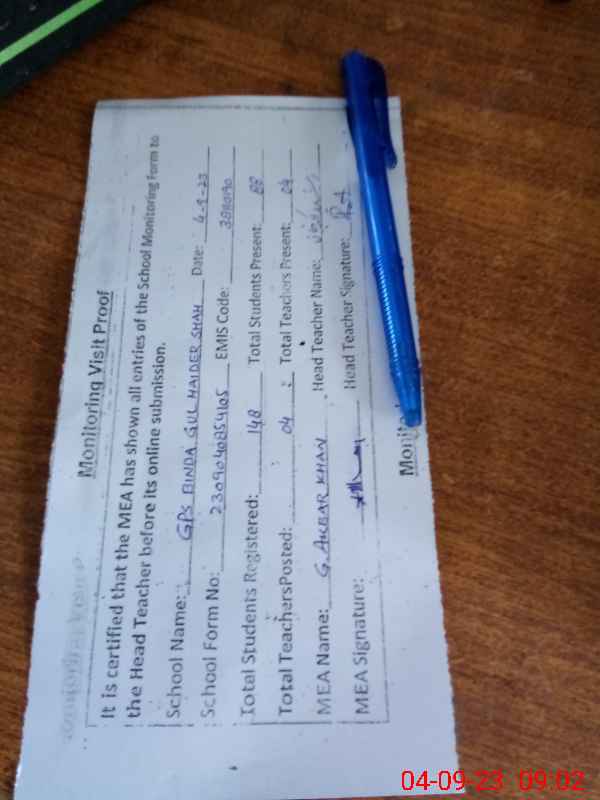 Monitoring Visit Proof
It is certified that the MEA has shown all entries of the School Monitoring Form to
the Head Teacher before its online submission.
School Name: GPS BINDA GUL HAIDER SHAH Date: 4-9-23
School Form No: 2309040854105 EMIS Code:
Total Students Registered: 148 Total Students Present: 88
Total Teachers Posted: 04 Total Teachers Present: 04
MEA Name: G. AKBAR KHAN Head Teacher Name:
MEA Signature: Head Teacher Signature:
04-09-23 09:02